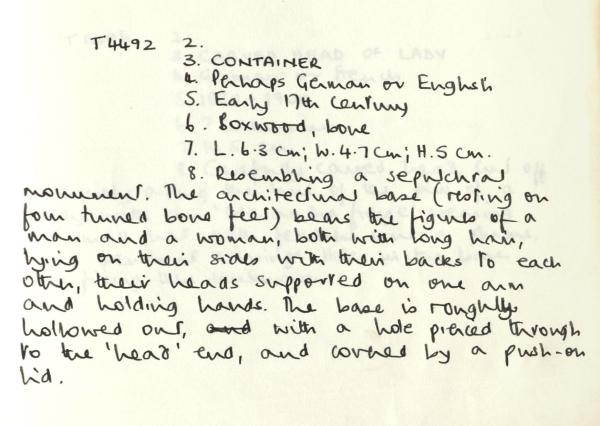 T4492 2.
3. CONTAINER
4. Perhaps German or English
5. Early 17th century
6. Boxwood, bone
7. L. 6.3 cm; W. 4.7 cm; H. 5 cm.
8. Resembling a sepulchral
monument. The architectural base (resting on
four turned bone feet) bears the figures of a
man and a woman, both with long hair,
lying on their sides with their backs to each
other, their heads supported on one arm
and holding hands. The base is roughly
hollowed out, and with a hole pierced through
to the 'head' end, and covered by a push-on
lid.